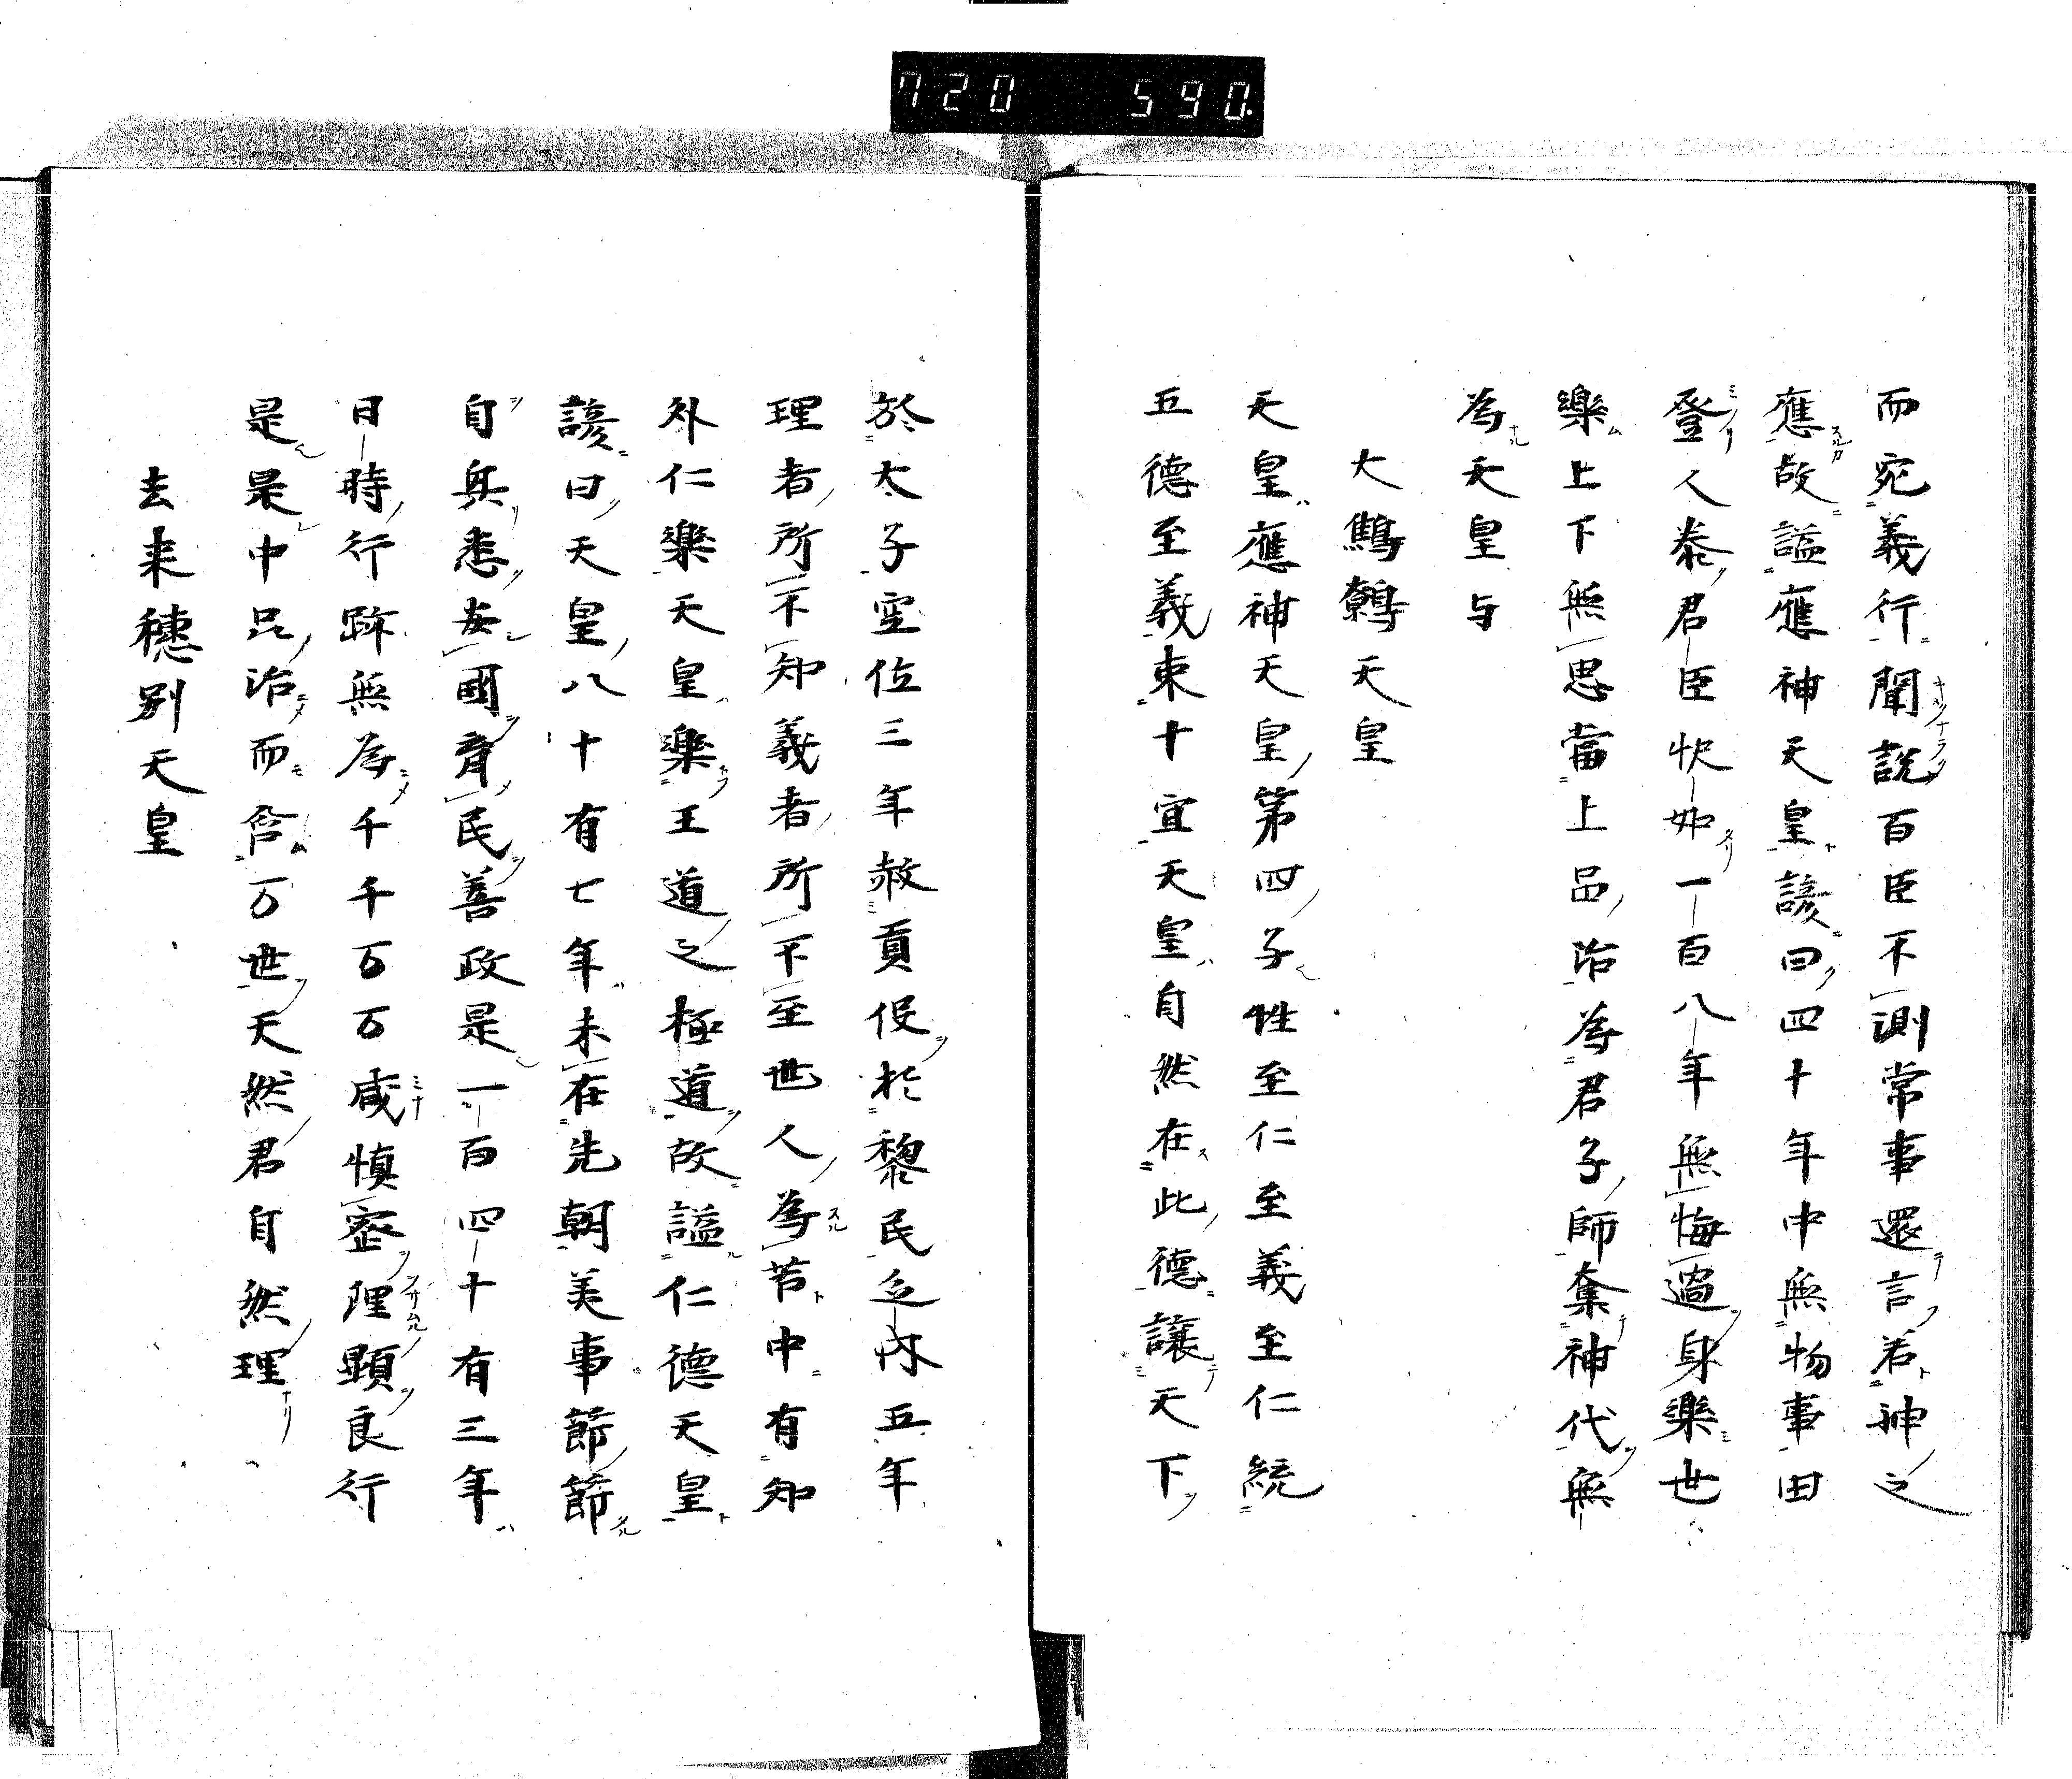 720 590.
而宛義行聞説百臣不測常事還言若神之
應故謚應神天皇諺曰四十年中無物事田
登人泰君臣快如一百八年無悔過身樂世
樂上下無思當上品治為君子師奪神代無
為天皇与
大鷦鷯天皇
天皇應神天皇第四子性至仁至義至仁統
五德至義束十宜天皇自然在此德讓天下
於太子空位三年赦貢役於黎民之内五年
理者所不知義者所不至世人為苦中有知
外仁樂天皇樂王道之極道故謚仁德天皇
諺曰天皇八十有七年未在先朝美事節節
自與悉安國育民善政是一百四十有三年
日時行跡無為千千万万咸慎密理顕良行
是是中品治而含万世天然君自然理
去来穂別天皇